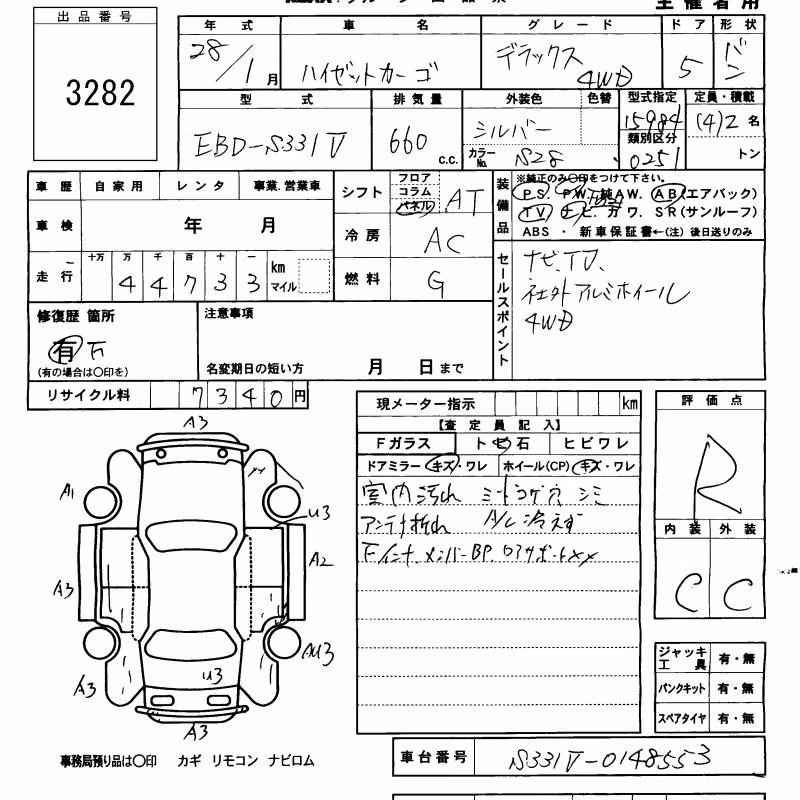 出品番号
3282
年式 車名 グレード ドア 形状
28/1月 ハイゼットカーゴ デラックス 4WD 5 バン
型式 排気量 外装色 色替 型式指定 定員・積載
EBD-S331V 660 c.c. シルバー 15984 (4)2名
カラーNo. S28 類別区分 0251 トン
車歴 自家用 レンタ 事業.営業車
車検 年 月
走行 十万 万 千 百 十 一 km マイル
4 4 7 3 3
シフト フロア コラム パネル AT
冷房 AC
燃料 G
装備品
※純正のみ〇印をつけて下さい。
PS. PW. 純AW. AB(エアバック)
TV. ナビ. カワ. SR(サンルーフ)
ABS ・ 新車保証書←(注) 後日送りのみ
セールスポイント
ナビ、TV、
社外アルミホイール
4WD
修復歴 箇所
有
(有の場合は〇印を)
注意事項
名変期日の短い方 月 日まで
リサイクル料 7340円
現メーター指示 km
【査定員記入】
Fガラス トビ石 ヒビワレ
ドアミラー キズ・ワレ ホイール(CP) キズ・ワレ
室内汚れ ミートコゲ穴 シミ
アンテナ折れ A/C冷えず
評価点
R
内装 外装
C C
A3
A1
U3
A2
A3
A3
AU3
U3
A3
ジャッキ 工具 有・無
パンクキット 有・無
スペアタイヤ 有・無
事務局預り品は〇印 カギ リモコン ナビロム
車台番号 S331V-0148553